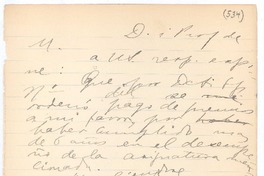 (534)
D. i Prof de
M.
a US. resp. exp.
ne: Que por Dcto
Nº del se
ordenó pago de premio
a mi favor por haber
haber cumplido mas
de 6 años en el desempe
ño de la asignatura men
cionada.